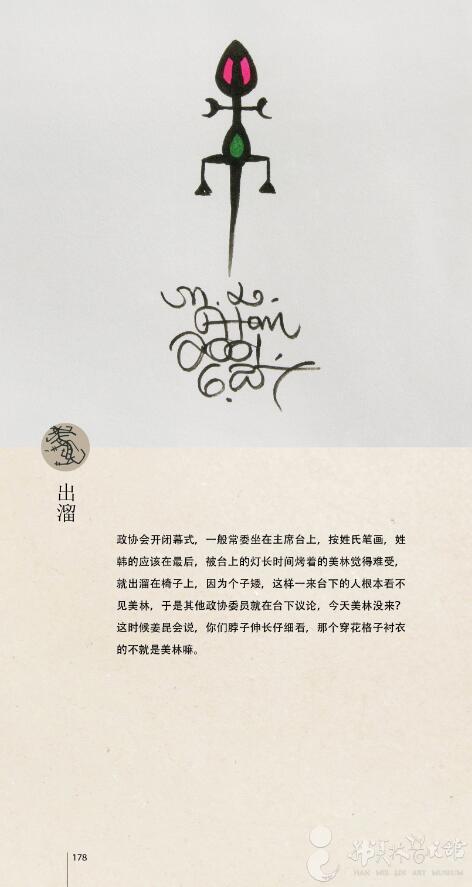 M.L.
Han
2001.
出溜
政协会开闭幕式，一般常委坐在主席台上，按姓氏笔画，姓
韩的应该在最后，被台上的灯长时间烤着的美林觉得难受，
就出溜在椅子上，因为个子矮，这样一来台下的人根本看不
见美林，于是其他政协委员就在台下议论，今天美林没来？
这时候姜昆会说，你们脖子伸长仔细看，那个穿花格子衬衣
的不就是美林嘛。
178
韩美林艺术馆
HAN MEI LIN ART MUSEUM